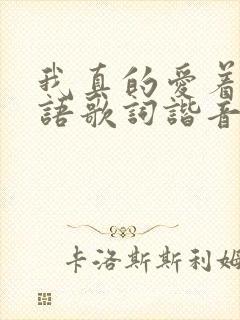 我真的愛着
語歌詞諧音
卡洛斯斯利姆